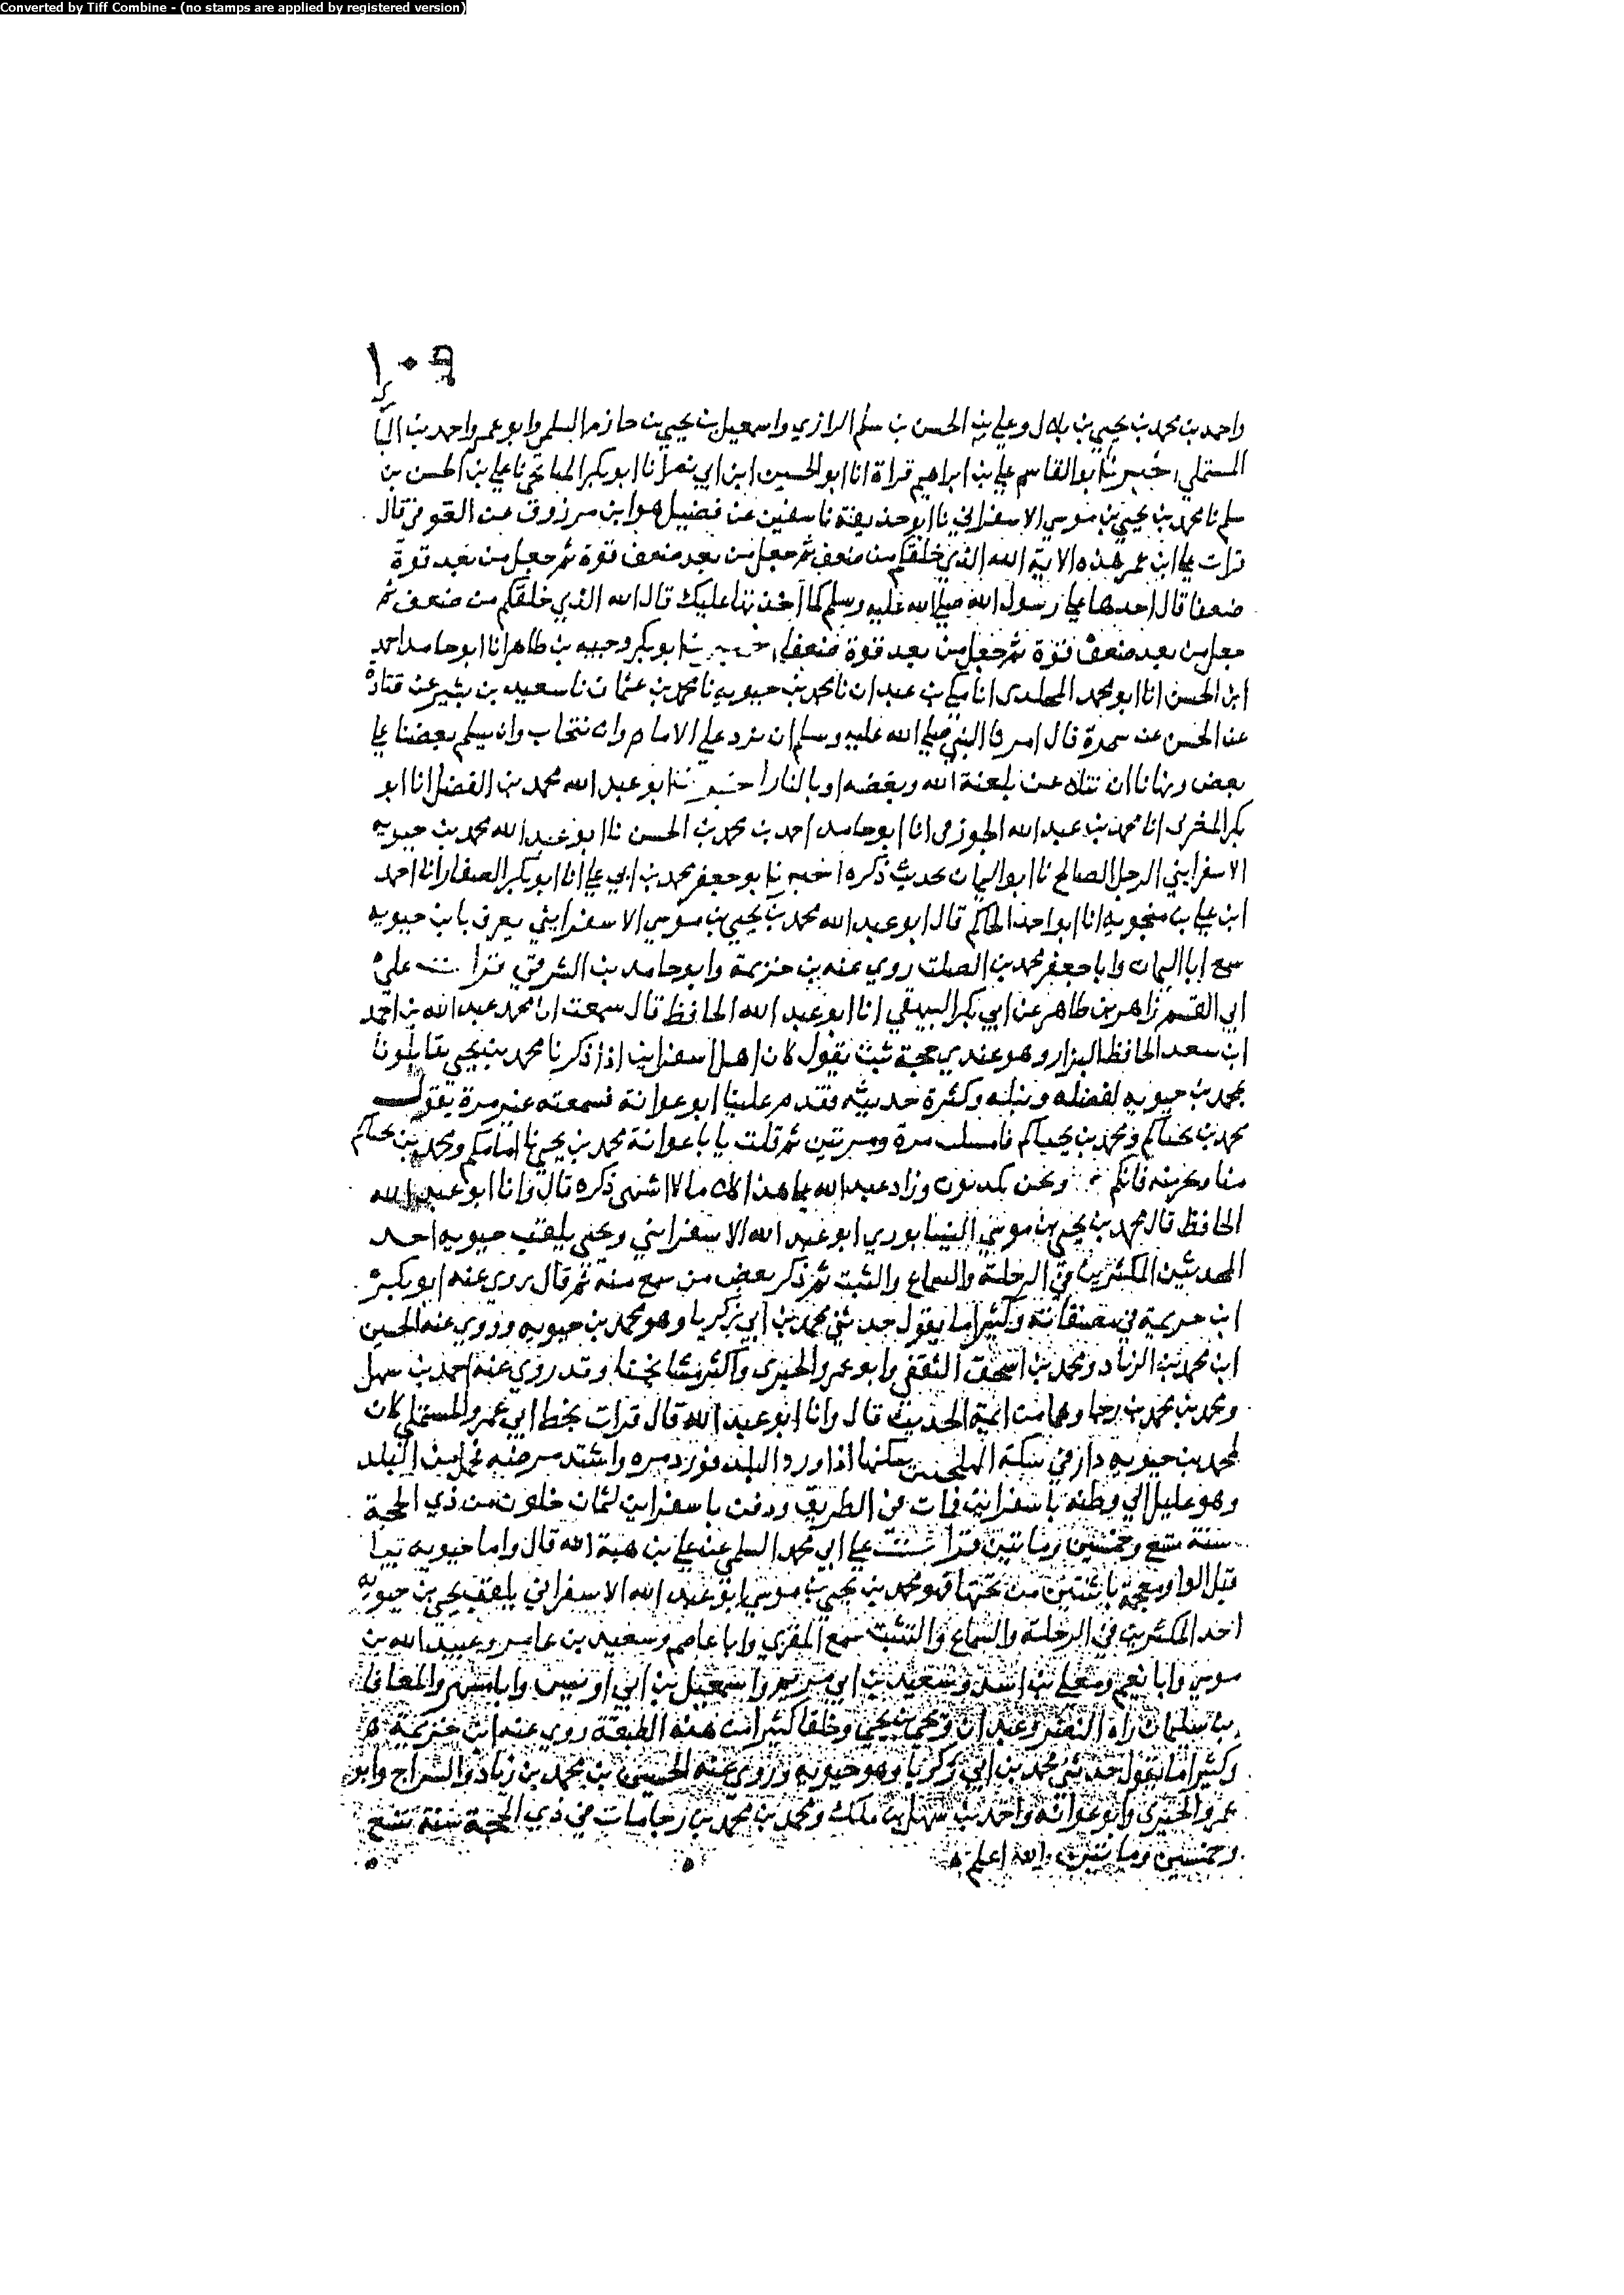 Converted by Tiff Combine - (no stamps are applied by registered version)
١٠٩
واحمد بن محمد بن يحيي بن بلال وعلي بن الحسن بن سلم الرازي واسمعيل بن يحيي بن حازم السلمي وابو عمرو احمد بن
المستملي اخبرنا ابو القاسم علي بن ابراهيم قراة انا ابو الحسين ابن ابي نصر انا ابو بكر الميانجي نا علي بن الحسن بن
سلم نا محمد بن يحيي بن موسي الاسفراني نا ابو حذيفة نا سفين عن فضيل هو ابن مرزوق عن العوفي قال
قرات علي ابن عمر هذه الاية الله الذي خلقكم من ضعف ثم جعل من بعد ضعف قوة ثم جعل من بعد قوة
ضعفا قال احدها علي رسول الله صلي الله عليه وسلم كما اخذتها عليك قال الله الذي خلقكم من ضعف ثم
جعل من بعد ضعف قوة ثم جعل من بعد قوة ضعفا اخبرنا ابو بكر وجيه بن طاهر انا ابو حامد احمد
ابن الحسن انا ابو محمد المخلدي انا مكي بن عبدان نا محمد بن حيويه نا محمد بن عثمان نا سعيد بن بشير عن قتادة
عن الحسن عن سمرة قال امرنا النبي صلي الله عليه وسلم ان نرد علي الامام وان نتحاب وان يسلم بعضنا علي
بعض ونهانا ان نتلاعن بلعنة الله وبغضه او بالنار اخبرنا ابو عبد الله محمد بن الفضل انا ابو
بكر المغربي انا محمد بن عبد الله الجوزقي انا ابو حامد احمد بن محمد بن الحسن نا ابو عبد الله محمد بن حيويه
الاسفرايني الرجل الصالح نا ابو اليمان بحديث ذكره اخبرنا ابو جعفر محمد بن ابي علي انا ابو بكر الصفار انا احمد
ابن علي بن منجويه انا ابو احمد الحاكم قال ابو عبد الله محمد بن يحيي بن موسي الاسفرايني يعرف بابن حيويه
سمع ابا اليمان وابا جعفر محمد بن الصلت روي عنه بن خزيمة وابو حامد بن الشرقي قرات علي
ابي القسم زاهر بن طاهر عن ابي بكر البيهقي انا ابو عبد الله الحافظ قال سمعت ابا محمد عبد الله بن احمد
ابن سعد الحافظ البزار وهو عندي حجة ثبت يقول كان اهل اسفراين اذا ذكرنا محمد بن يحيي يقابلونا
بمحمد بن حيويه لفضله ونبله وكثرة حديثه فقدم علينا ابو عوانة فسمعته غير مرة يقول
محمد بن يحياكم ومحمد بن يحياكم فامسكت مرة ومرتين ثم قلت يا با عوانة محمد بن يحيي نا امامكم ومحمد بن يحياكم
منا ونحن فانكم ونحن وزاد عبد الله علي هذا الكلام ما لا اشتهي ذكره قال وانا ابو عبد الله
الحافظ قال محمد بن يحيي بن موسي النيسابوري ابو عبد الله الاسفرايني ويحيي يلقب حيويه احد
المحدثين المكثرين في الرحلة والسماع والثبت ثم ذكر بعض من سمع منه ثم قال روي عنه ابو بكر
ابن خزيمة في مصنفاته وكثيرا ما يقول حدثني محمد بن ابي زكريا وهو محمد بن حيويه وروي عنه الحسين
ابن محمد بن الزياد ومحمد بن اسحق الثقفي وابو عمرو الحيري واكثر مشايخنا وقد روي عنه احمد بن سهل
ومحمد بن محمد بن رجا وهما من ايمة الحديث قال وانا ابو عبد الله قال قرات بخط ابي عمرو المستملي كان
لمحمد بن حيويه دار في سكة يسكنها اذا ورد البلد فورد مرة واشتد مرضه فحمل من البلد
وهو عليل الي وطنه باسفراين فمات في الطريق ودفن باسفراين لثمان خلون من ذي الحجة
سنة تسع وخمسين ومايتين قرات علي ابي محمد السلمي عن علي بن هبة الله قال واما حيويه بيا
قبل الواو معجمة باثنتين من تحتها فهو محمد بن يحيي بن موسي ابو عبد الله الاسفراني يلقب يحيي بن حيويه
احد المكثرين في الرحلة والسماع والتثبت سمع المقري وابا عاصم وسعيد بن عامر وعبيد الله بن
موسي وابا نعيم ومعلي بن اسد وسعيد بن ابي مريم واسمعيل بن ابي اويس وابا مسهر والمعافا
بن سليمان وابا النضر وعبدان ويحيي بن يحيي وخلقا كثيرا من هذه الطبقة روي عنه ابن خزيمة
وكثيرا ما يقول حدثني محمد بن ابي زكريا وهو حيويه وروي عنه الحسين بن محمد بن زياد والسراج وابو
عمرو الحيري وابو عوانه واحمد بن سهل بن ملك ومحمد بن محمد بن رجا مات في ذي الحجة سنة تسع
وخمسين ومايتين والله اعلم